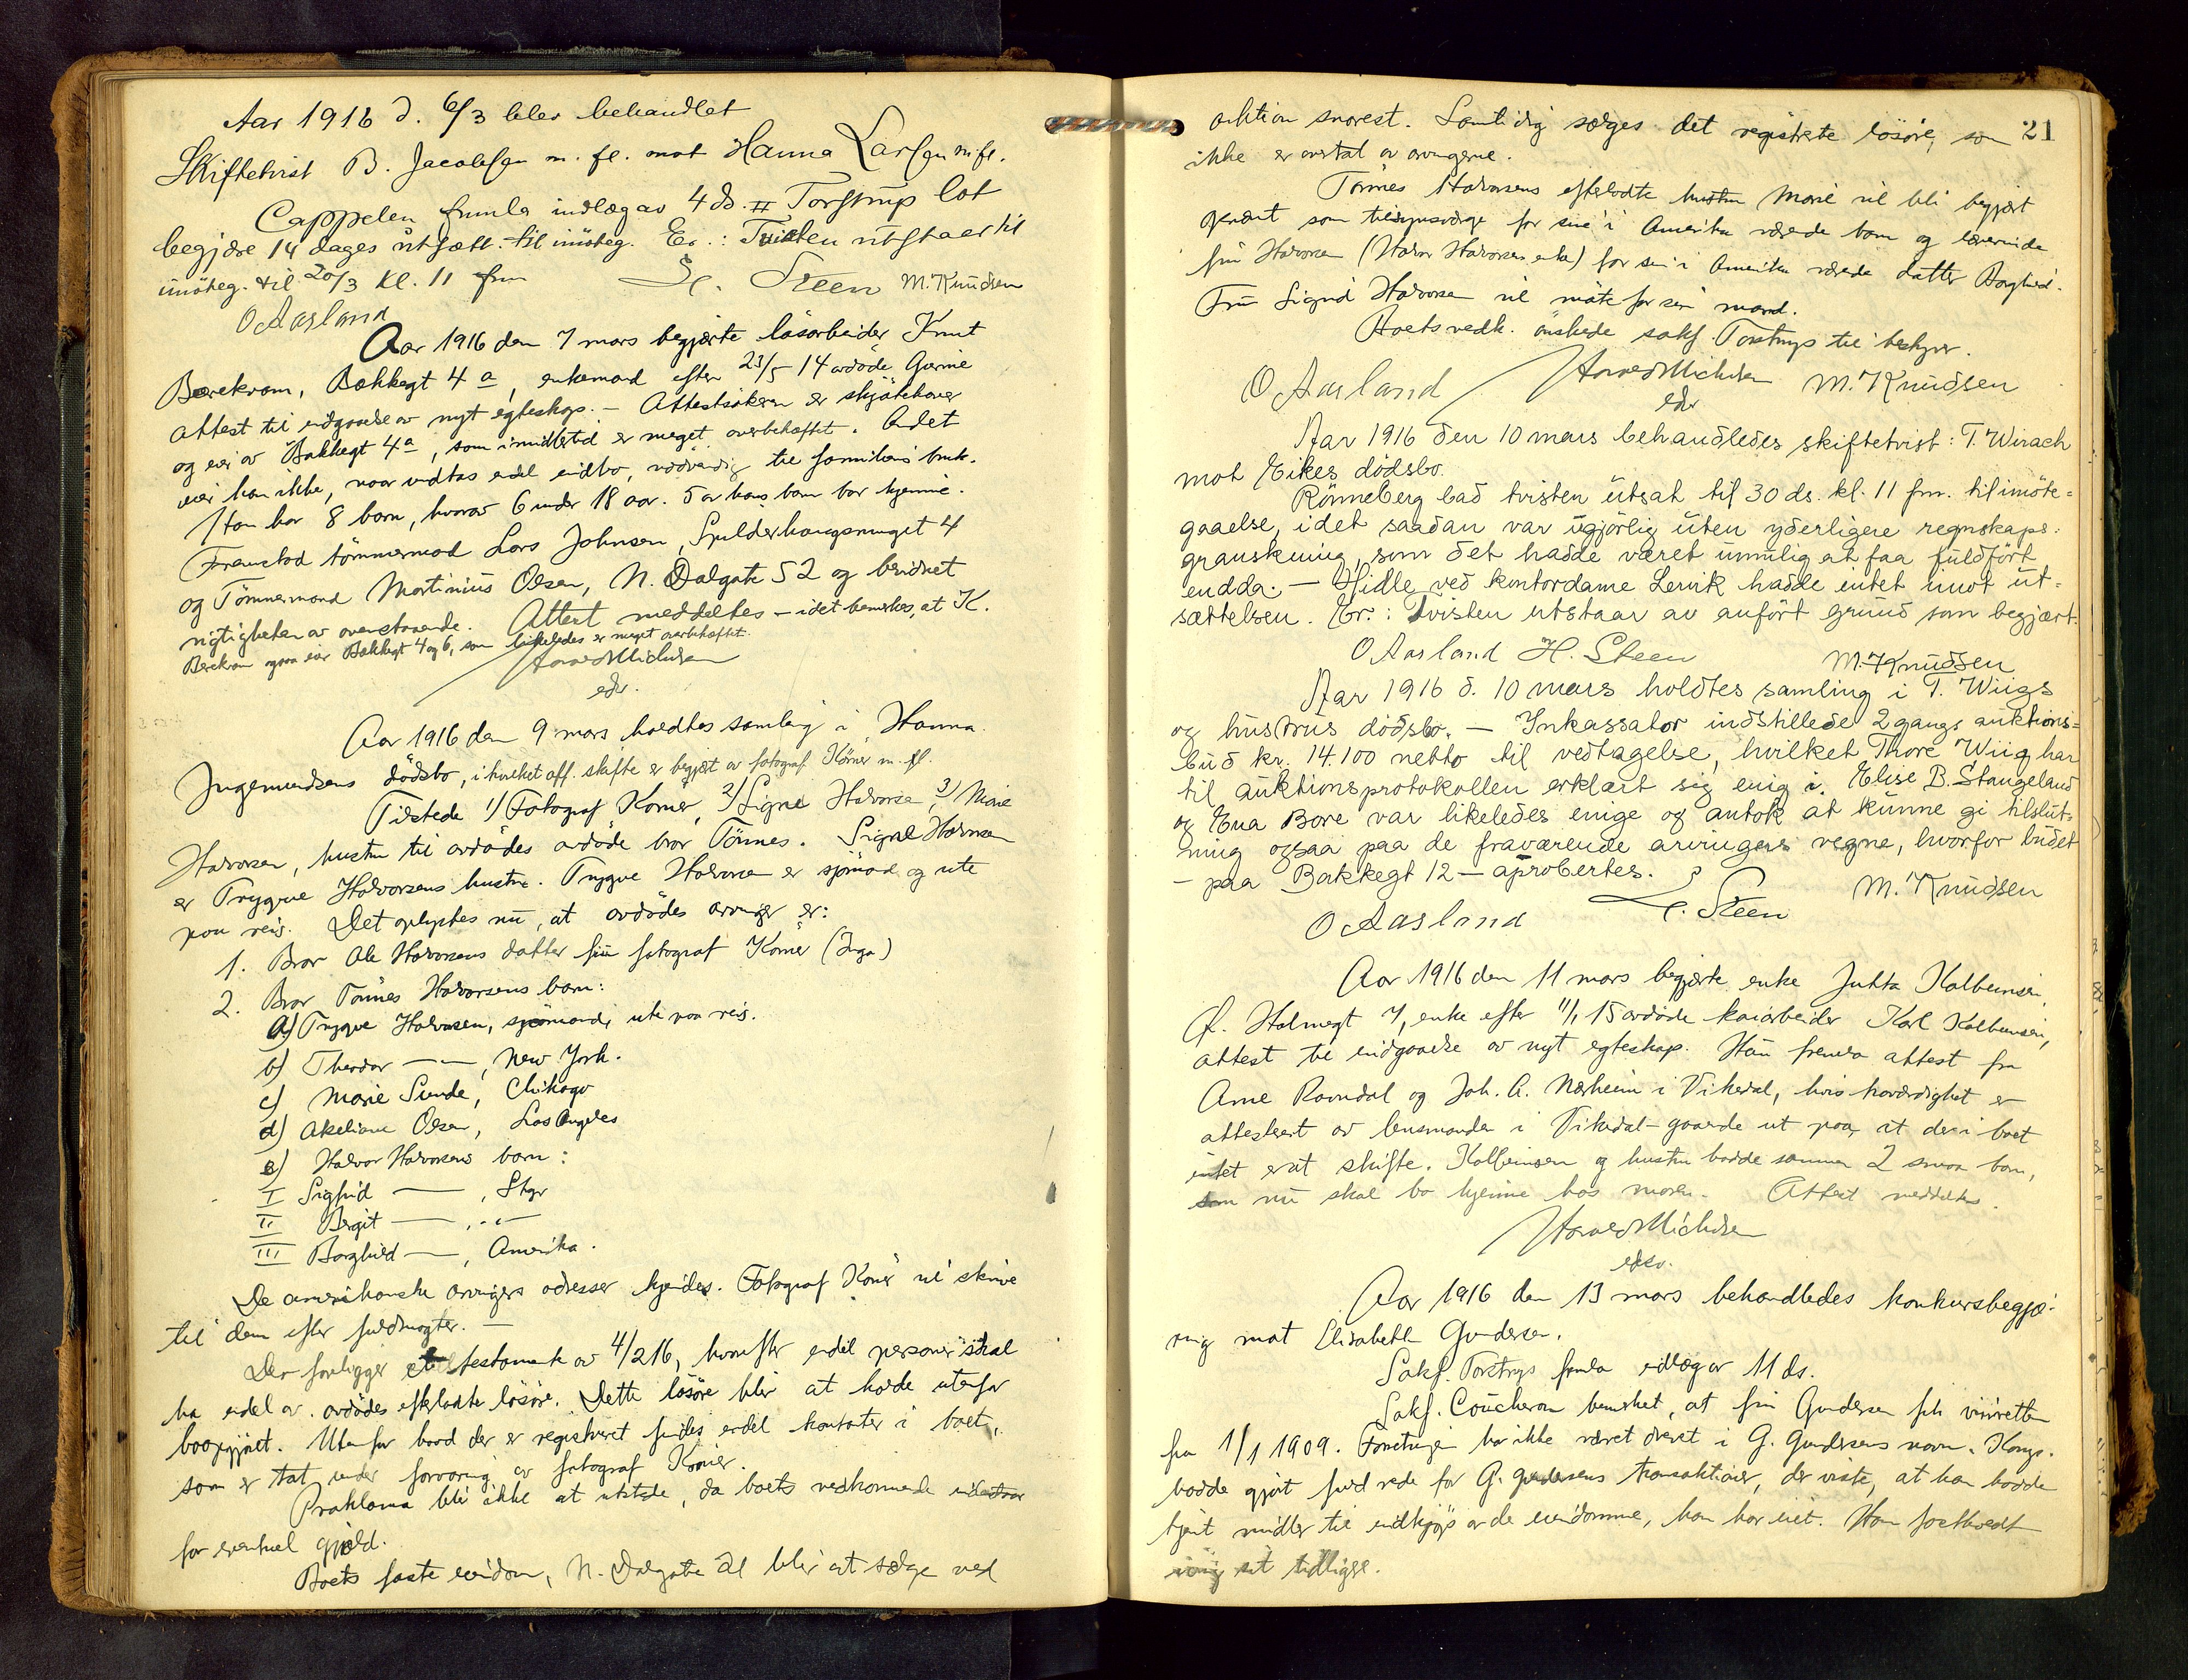 Aar 1916 d. 6/3 blev behandlet
Skiftetvist B. Jacobsen m. fl. mot Hanna Larsen m. fl.
Cappelen fremla indlæg av 4 ds. Torstrup lot
begjære 14 dages utsætt. til imøteg. Er.: Tvisten utstaar til
imøteg. til 20/3 kl. 11 fm
H. Steen M. Knudsen
O Aasland
Aar 1916 den 7 mars begjærte løsarbeider Knut
Berekvam, Bakkegt 4 a, enkemand efter 23/5 14 avdøde Gurine
attest til indgaaelse av nyt egteskap. – Attestsøkeren er skjøtehaver
og eier av Bakkegt 4a, som imidlertid er meget overbehæftet. Andet
eier han ikke, naar undtas endel indbo, nødvendig til familiens bruk.
Han har 8 barn, hvorav 6 under 18 aar. 5 av hans barn bor hjemme.
Fremstod tømmermand Lars Johnsen, Spilderhaugsmuget 4
og Tømmermand Martinius Olsen, N. Dalgate 52 og bevidnet
rigtigheten av ovenstaaende. Attest meddeltes – idet bemerkes, at K.
Berekvam ogsaa eier Bakkegt 4 og 6, som likeledes er meget overbehæftet.
Harald Michelsen
edsv.
Aar 1916 den 9 mars holdtes samling i Hanna
Ingemundsens dødsbo, i hvilket off. skifte er begjært av fotograf Körner m. fl.
Tilstede 1) Fotograf Körner, 2) Signe Halvorsen, 3) Marie
Halvorsen, hustru til avdødes avdøde bror Tønnes. Signe Halvorsen
er Trygve Halvorsens hustru. Trygve Halvorsen er sjømand og ute
paa reis. Det oplystes nu, at avdødes arvinger er:
1. Bror Ole Halvorsens datter fru fotograf Körner (Inga)
2. Bror Tønnes Halvorsens barn:
a) Trygve Halvorsen, sjømand, ute paa reis.
b) Theodor —"—, New York.
c) Marie Sunde, Chikago
d) Akeliane Olsen, Los Angeles
e) Halvor Halvorsens barn:
I Sigfrid —— , Stgr
II Bergit —— , -"-
III Borghild —— , Amerika.
De amerikanske arvingers adresser kjendes. Fotograf Körner vil skrive
til dem efter fuldmagter. —
Der foreligger et testamente av 4/2 16, hvorefter endel personer skal
ha endel av avdødes efterladte løsøre. Dette løsøre blir at holde utenfor
boopgjøret. Utenfor hvad der er registrert findes endel kontanter i boet,
som er tat under forvaring av fotograf Körner.
Proklama blir ikke at utstede, da boets vedkommende indestaar
for eventuel gjæld.
Boets faste eiendom, N. Dalgate 21 blir at sælge ved
21
auktion snarest. Samtidig sælges det registrerte løsøre, som
ikke er overtat av arvingerne.
Tønnes Halvorsens efterladte hustru Marie vil bli begjært
opnævnt som tilsynsværge for sine i Amerika værende barn og lærerinde
fru Halvorsen (Halvor Halvorsens enke) for sin i Amerika værende datter Borghild.
Fru Signe Halvorsen vil møte for sin mand.
Boets vedk. ønskede sakf. Torstrup til bestyrer.
Harald Michelsen
edsv
O Aasland M. Knudsen
Aar 1916 den 10 mars behandledes skiftetvist: T. Wirach
mot Eikes dødsbo.
Rønneberg bad tvisten utsat til 30 ds. kl. 11 fm. til imøte=
gaaelse, idet saadan var ugjørlig uten yderligere regnskaps=
granskning, som det hadde været umulig at faa fuldført
endda. – Hidle ved kontordame Lervik hadde intet imot ut=
sættelsen. Er.: Tvisten utstaar av anført grund som begjært.
O Aasland H. Steen M. Knudsen
Aar 1916 d. 10 mars holdtes samling i T. Wiigs
og hustrus dødsbo. – Inkassator indstillede 2 gangs auktions=
bud kr. 14.100 netto til vedtagelse, hvilket Thore Wiig har
til auktionsprotokollen erklært sig enig i. Elise B. Stangeland
og Ena Bore var likeledes enige og antok at kunne gi tilslut=
ning ogsaa paa de fraværende arvingers vegne, hvorfor budet
– paa Bakkegt 12 – aprobertes.
O Aasland H. Steen M. Knudsen
Aar 1916 den 11 mars begjærte enke Jutta Kolbeinsen,
Ø. Holmegt 7, enke efter 11/1 15 avdøde kaiarbeider Karl Kolbeinsen,
attest til indgaaelse av nyt egteskap. Hun fremla attest fra
Arne Ravndal og Joh. A. Nærheim i Vikedal, hvis troværdighet er
attestert av lensmanden i Vikedal – gaaende ut paa, at der i boet
intet er at skifte. Kolbeinsen og hustru hadde sammen 2 smaa barn,
som nu skal bo hjemme hos moren. Attest meddeltes.
Harald Michelsen
edsv.
Aar 1916 den 13 mars behandledes konkursbegjæ-
ring mot Elisabeth Gundersen.
Sakf. Torstrup fremla indlæg av 11 ds.
Sakf. Coucheron bemerket, at fru Gundersen fik vinretten
fra 1/1 1909. Forretningen har ikke været drevet i G. Gundersens navn.
hadde gjort fuld rede for G. Gundersens transaktioner, der viste, at han hadde
tjent midler til indkjøp av de eiendomme, han har eiet. Han fastholdt
sit tidligere.